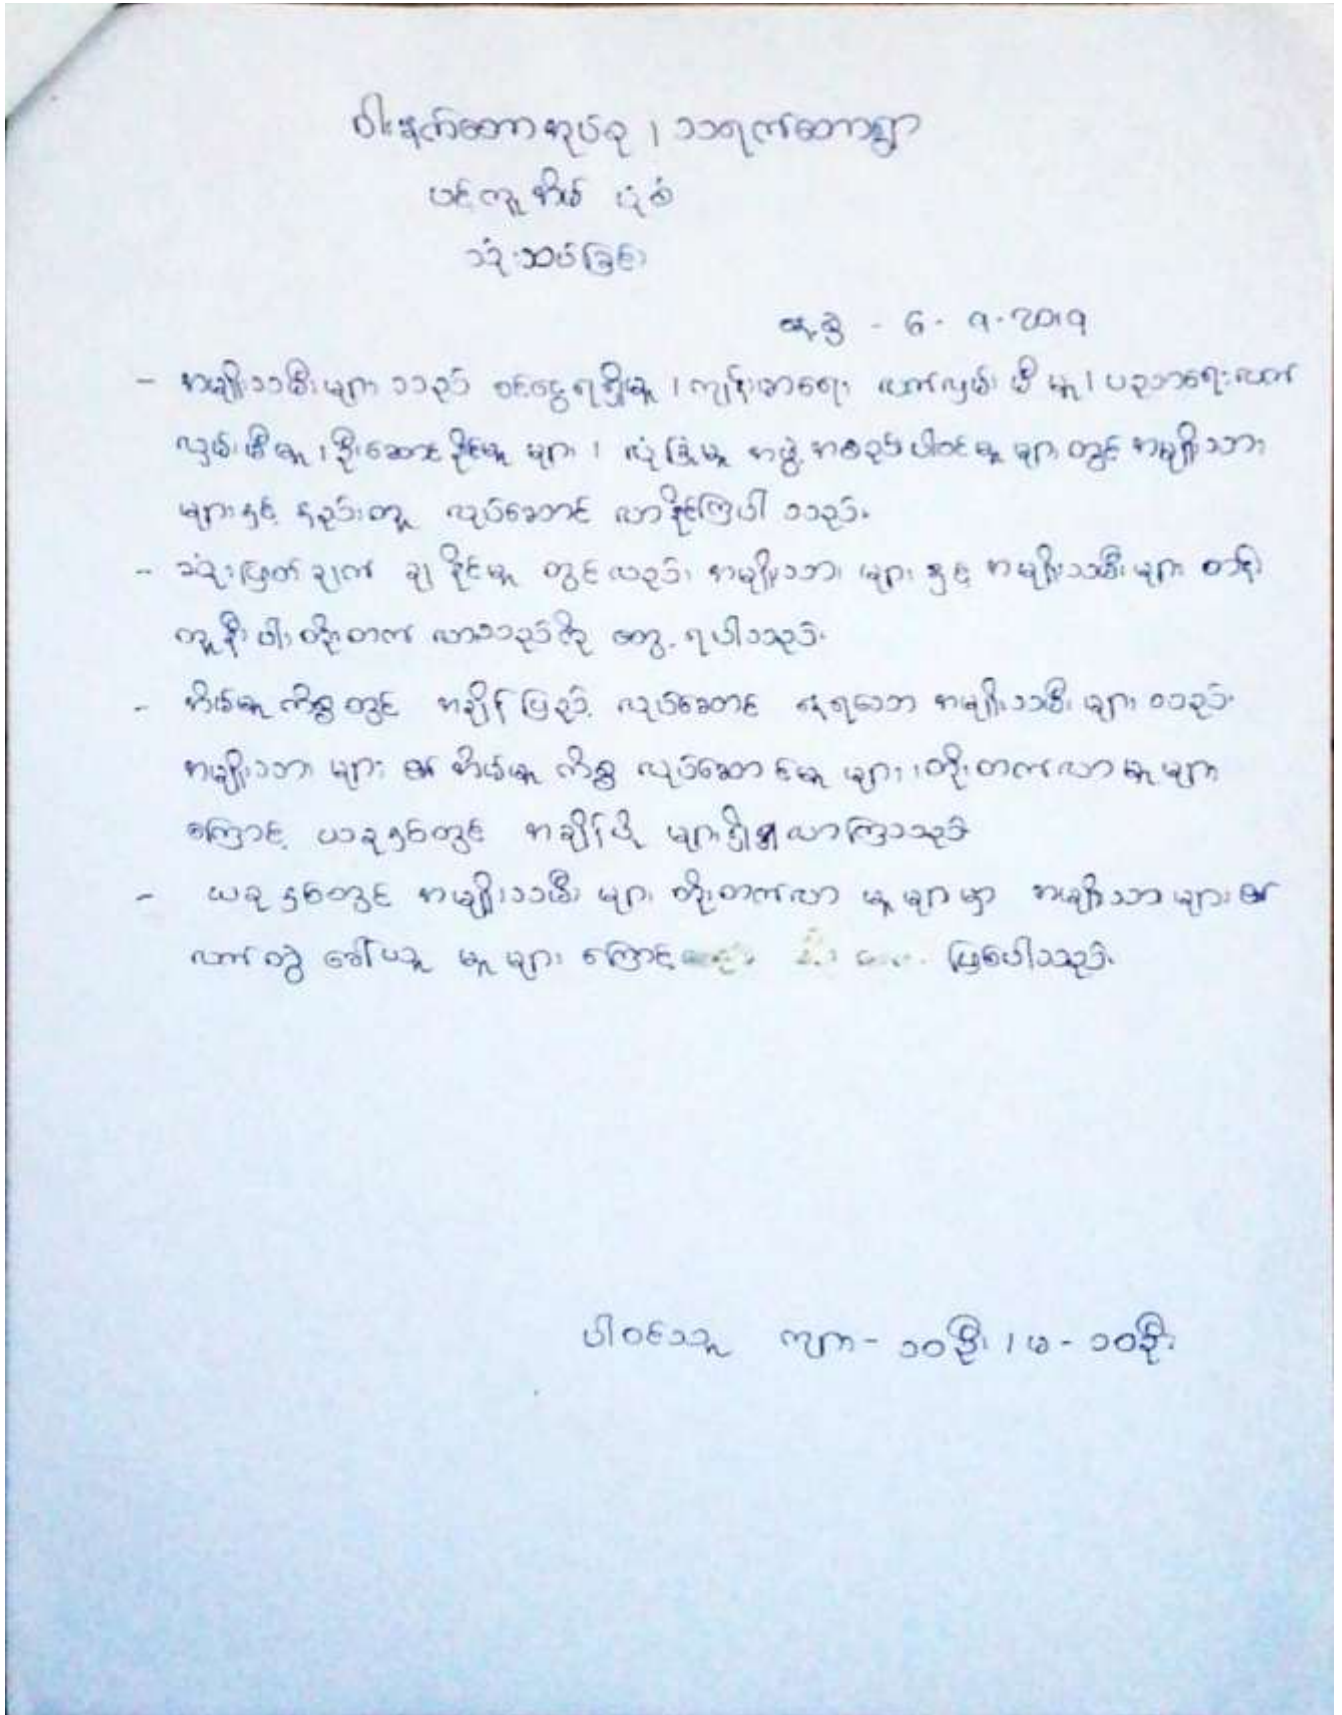 ဝါးနက်တောအုပ်စု ၊ သရက်တောရွာ
ပင့်ကူအိမ် ပုံစံ
သုံးသပ်ခြင်း
နေ့စွဲ - 6 - 9 - 2019
- အမျိုးသမီးများသည် ဝင်ငွေရရှိမှု ၊ ကျန်းမာရေး လက်လှမ်း မီမှု ၊ ပညာရေးလက်
လှမ်းမီမှု ၊ ဦးဆောင်နိုင်မှု များ ၊ လုံခြုံမှု အဖွဲ့အစည်းပါဝင်မှု များ တွင် အမျိုးသား
များနှင့် နည်းတူ လုပ်ဆောင် လာနိုင်ကြပါသည်။
- ဆုံးဖြတ်ချက် ချနိုင်မှု တွင်လည်း အမျိုးသား များ နှင့် အမျိုးသမီးများ တန်း
တူနီးပါး တိုးတက် လာသည်ကို တွေ့ရပါသည်။
- အိမ်မှုကိစ္စတွင် အချိန်ပြည့် လုပ်ဆောင် နေရသော အမျိုးသမီး များ သည်
အမျိုးသား များ ၏ အိမ်မှု ကိစ္စ လုပ်ဆောင်မှု များ ၊ တိုးတက်လာမှုများ
ကြောင့် ယခုနှစ်တွင် အချိန်ပို များရရှိလာကြသည်
- ယခုနှစ်တွင် အမျိုးသမီး များ တိုးတက်လာ မှု များမှာ အမျိုးသား များ ၏
လက်တွဲ ခေါ်ယူ မှု များ ကြောင့် ဖြစ်ပါသည်။
ပါဝင်သူ ကျား - ၁၀ဦး ၊ မ - ၁၀ဦး